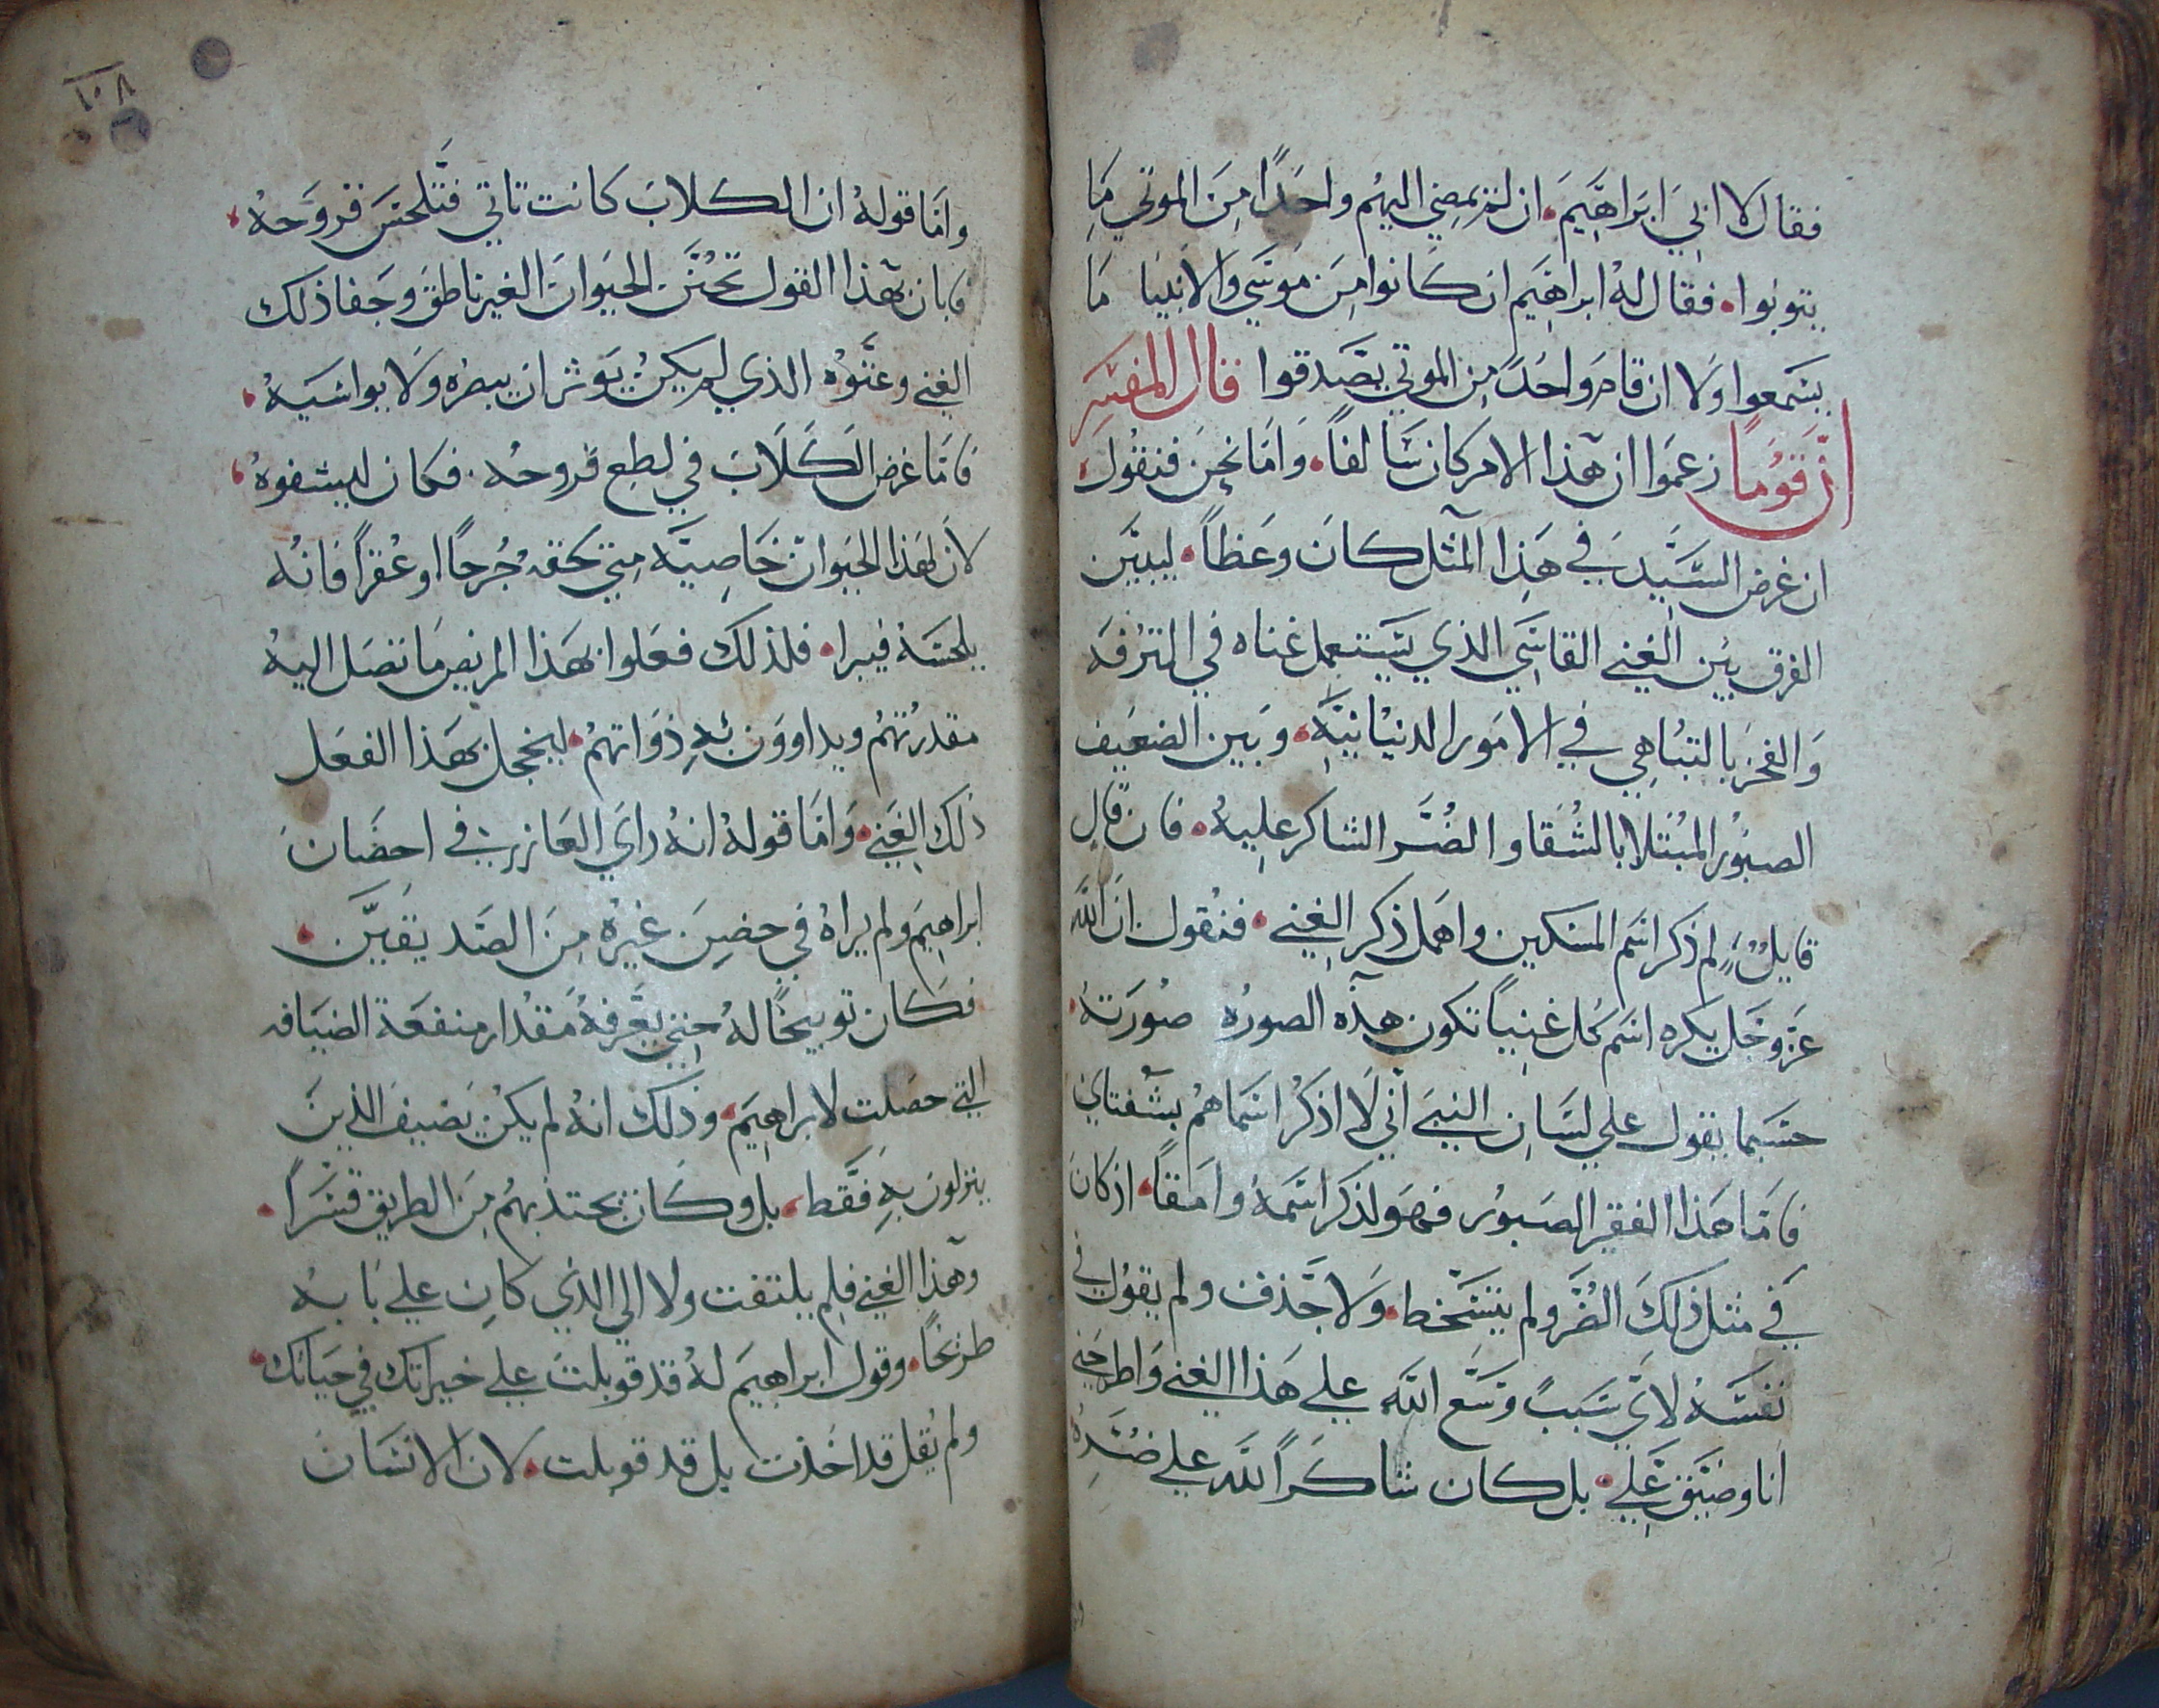 فقال لا ابي ابراهيم. ان لم يمضي اليهم واحدًا من الموتي ما
يتوبوا. فقال له ابراهيم ان كانوا من موسي والانبيا ما
يسمعوا ولا ان قام واحد من الموتي يصدقوا قال المفسر
ان قومًا زعموا ان هذا الامر كان سالفًا. واما نحن فنقول
ان غرض السيد في هذا المثل كان وعظًا. ليبين
الفرق بين الغني القاسي الذي يستعمل غناه في الترفه
والفخر بالتباهي في الامور الدنيانيه. وبين الضعيف
الصبور المبتلا بالشقا والضر الشاكر عليه. فان قال
قايلٌ لم ذكر اسم المسكين واهمل ذكر الغني. فنقول ان الله
عز وجل يكره اسم كل غنيًا تكون هذه الصوره صورته.
حسبما يقول علي لسان النبي اني لا اذكر اسماهم بشفتاي
فاما هذا الفقير الصبور فهو لذكر اسمه وامقًا. اذ كان
في مثل ذلك الضر ولم يتسخط. ولا جذف ولم يقول في
نفسه لاي سببٍ وسع الله علي هذا الغني واطرحني
انا وضيق علي. بل كان شاكرًا لله علي ضده
١٠٨
واما قوله ان الكلاب كانت تاتي فتلحس قروحه.
فابان بهذا القول تحنن الحيوان الغير ناطق وجفا ذلك
الغني وعتوه الذي لم يكن يوثر ان يبصره ولا يواسيه.
فاما غرض الكلاب في لطع قروحه. فكان ليشفوه.
لان لهذا الحيوان خاصيه متي لحقه جُرحًا او عُقرًا فانه
يلحسه فيبرا. فلذلك فعلوا بهذا المريض ما تصل اليه
مقدرتهم ويداوون به ذواتهم. ليخجل بهذا الفعل
ذلك الغني. واما قوله انه راي العازر في احضان
ابراهيم ولم يراه في حضن غيره من الصديقين.
فكان توبيخًا له حتي يعرفه مقدار منفعة الضيافه
التي حصلت لابراهيم. وذلك انه لم يكن يضيف الذين
ينزلون به فقط. بل وكان يجتذبهم من الطريق قسرًا.
وهذا الغني فلم يلتفت ولا الي الذي كان علي بابه
طريحًا. وقول ابراهيم له قد قوبلت علي خيراتك في حياتك.
ولم يقل قد اخذت بل قد قوبلت. لان الانسان